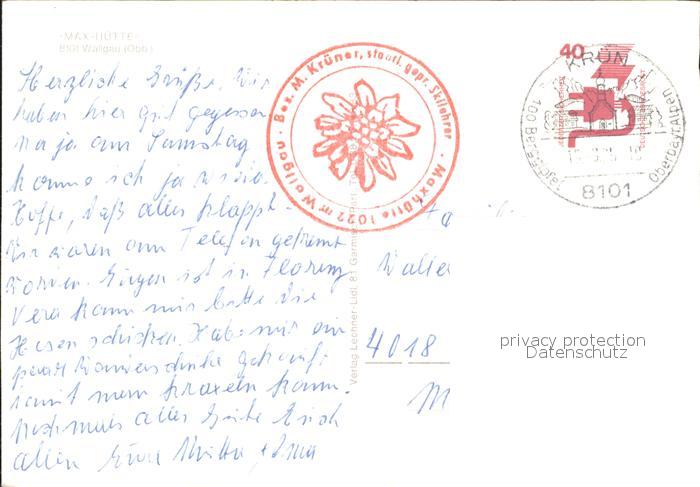 -MAX-HÜTTE-
8101 Wallgau (Obb.)
Herzliche Grüße. Wir
haben hier gut gegessen
na ja am Samstag
komme ich ja wieder.
Hoffe, daß alles klappt.
Wir waren am Telefon getrennt
worden. Eugen ist in Florenz
Vera kann mir bitte die
Hosen schicken. Habe mir ein
paar Wanderschuhe gekauft
damit man kraxeln kann.
Nochmals alles Gute Euch
allen Eure Mutter + Oma
Bes. M. Krüner, staatl. gepr. Skilehrer · Maxhütte 1022 m Wallgau ·
Verlag Lechner-Lidl, 81 Garmisch
40
KRÜN
Oberbay. Alpen
8101
4018
M
privacy protection
Datenschutz